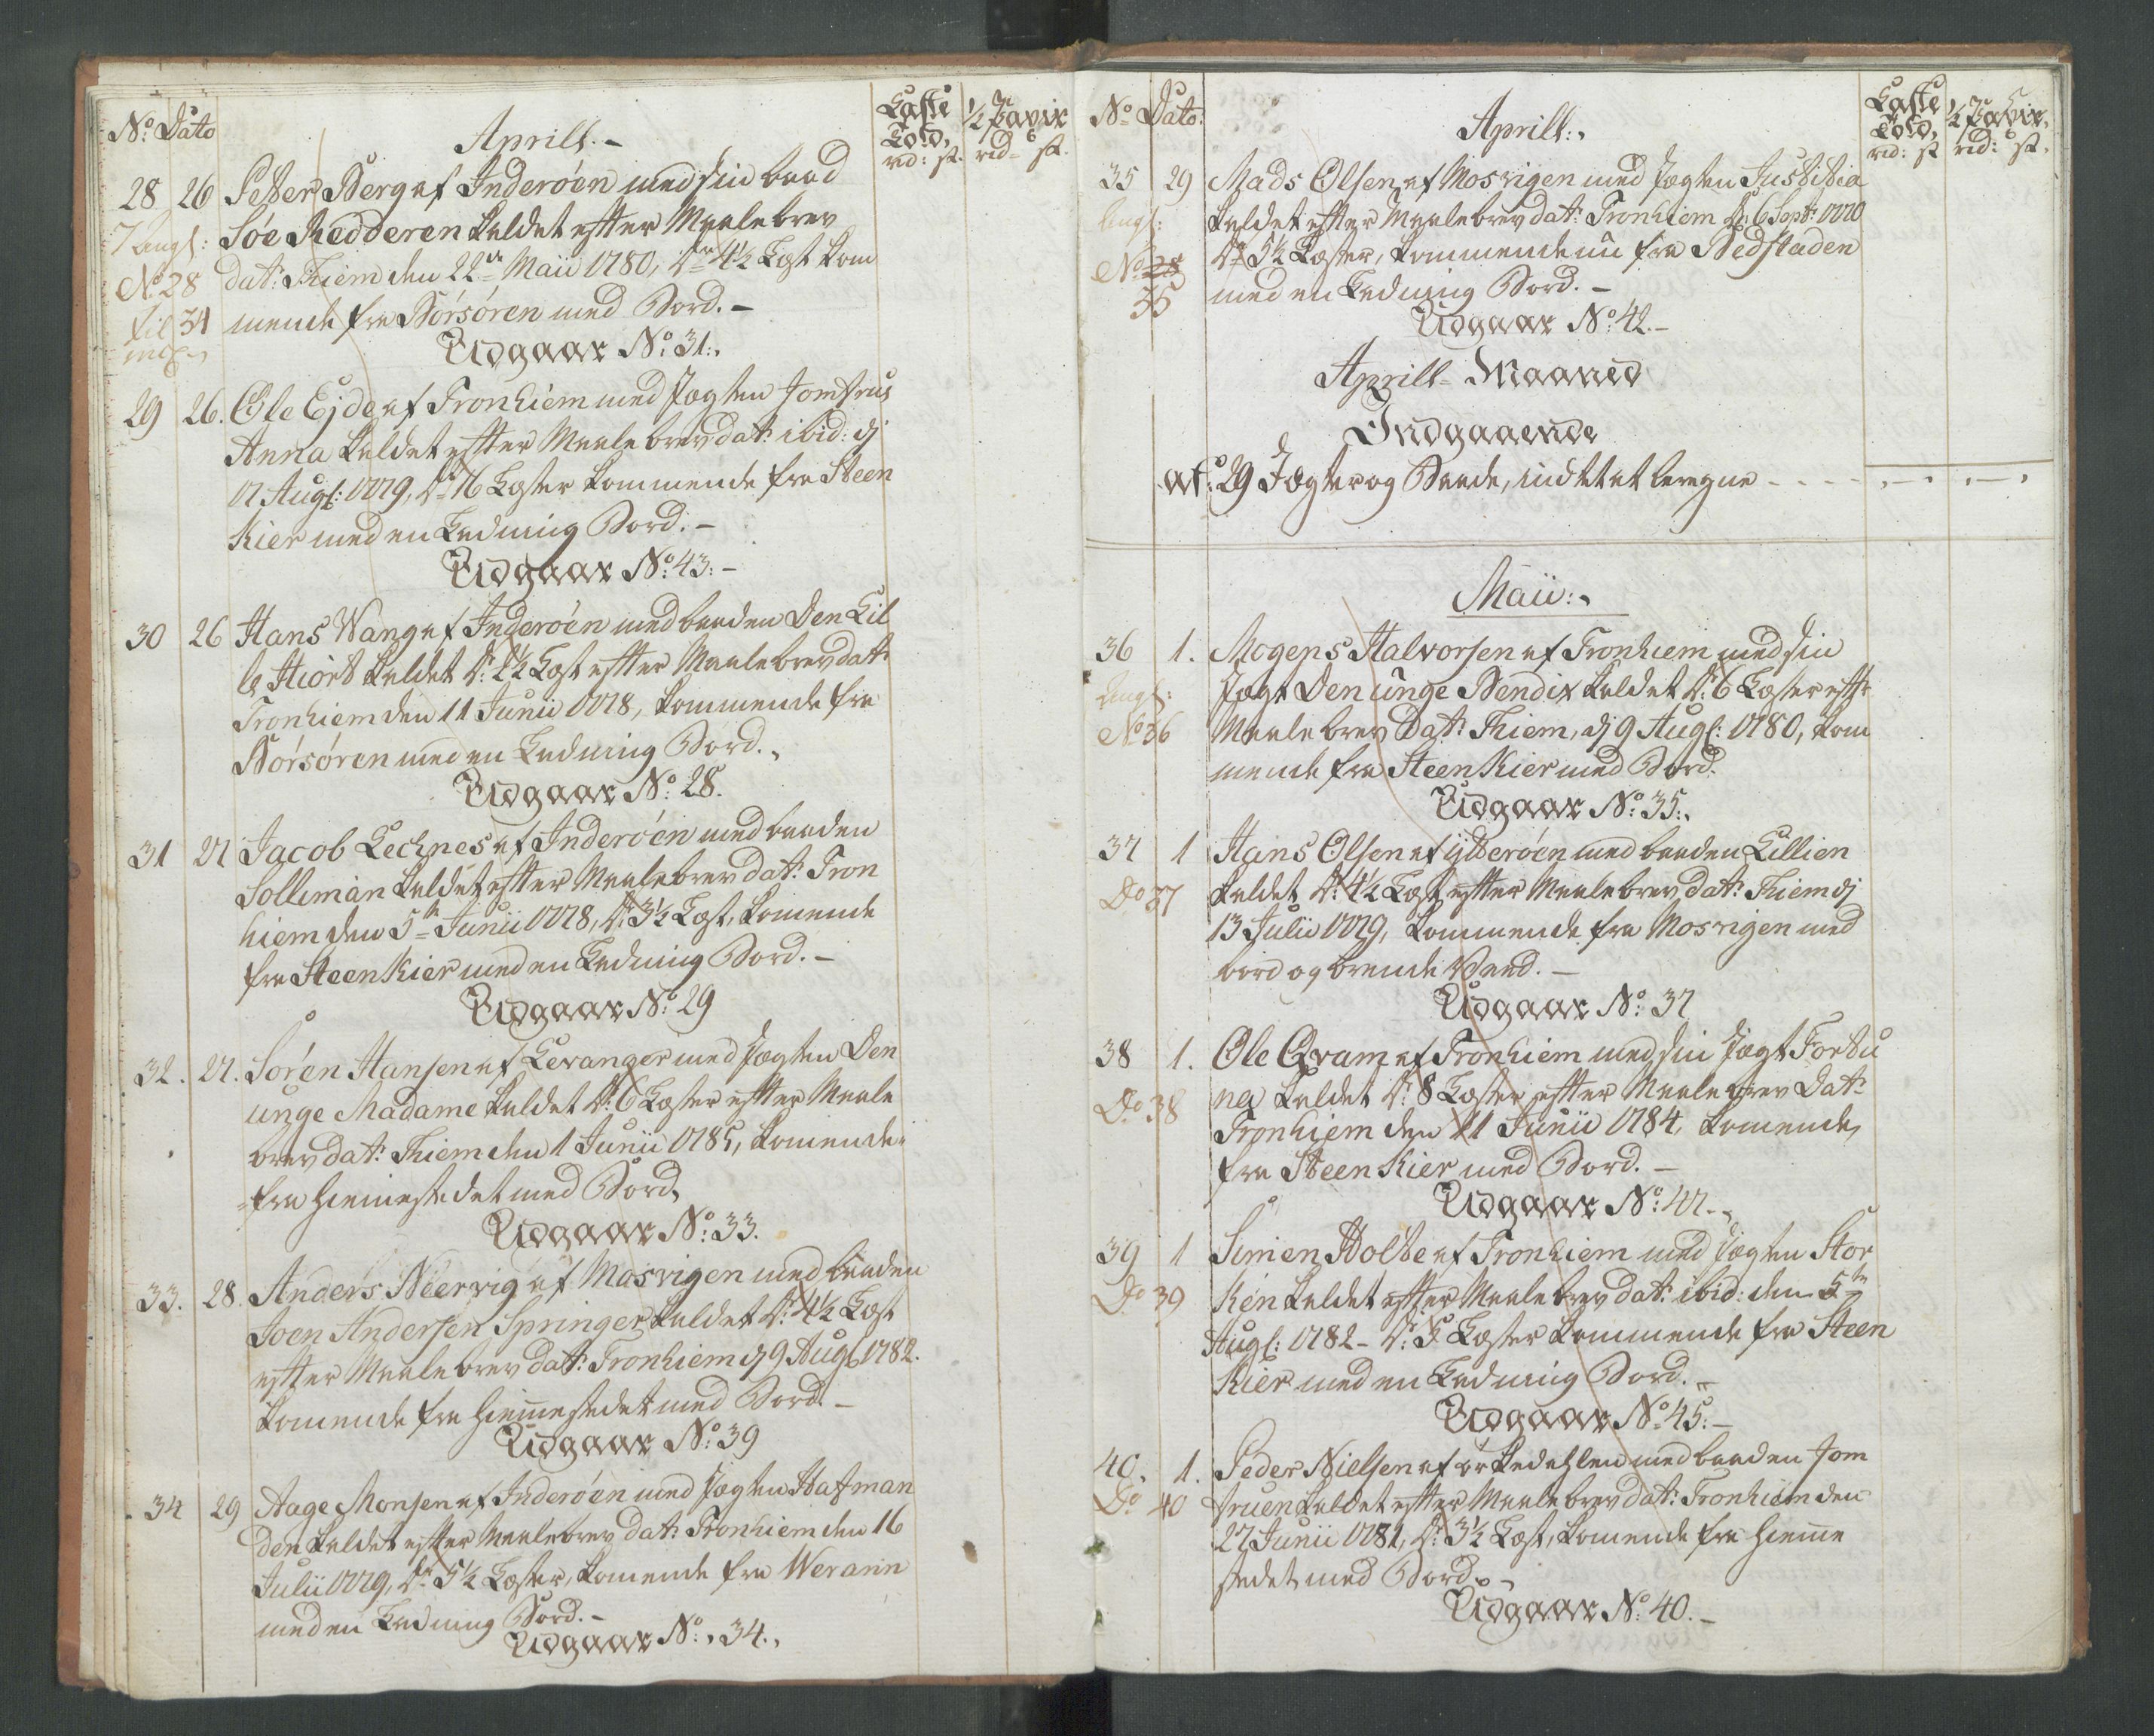 No: Dato
Aprill.-
Læste Told,
½ pavix
rd: sk. rd: sk.
28 26 Petter Berg af Inderöen med sin baad
Söe Redderen kaldet efter Maalebrev
dat: Thiem den 22de Maii 1780, Dr 4½ Læst kom
mende fra Börsören med Bord.-
7 Augl:
No 28
til 34
incl.
Udgaar No: 31.
29 26. Ole Ejde af Tronhiem med Jagten Jomfrue
Anna kaldet efter Maalebrev dat: ibid: dj
17 Augs: 1779, Dr 16 Læster kommende fra Steen
Kier med en Ladning Bord.-
Udgaar No: 43.-
30 26 Hans Wang af Inderöen med baaden Den Lil
le Hiort kaldet Dr: 2½ Læst efter Maalebrev dat:
Tronhiem den 11 Junii 1778, kommende fra
Börsören med en Ladning Bord.
Udgaar No: 28.
31 27 Jacob Lechnes af Inderöen med baaden
Solliman kaldet efter Maalebrev dat: Tron
hiem den 5te Junii 1778, Dr: 3½ Læst, komende
fra Steenkier med en Ladning Bord.-
Udgaar No: 29
32. 27. Sören Hansen af Levanger med Jagten Den
unge Madame kaldet Dr: 6 Læster efter Maale
brev dat: Thiem den 1 Junii 1785, komende
fra Hiemmestedet med Bord.
Udgaar No: 33.
33. 28. Anders Neervig af Mosvigen med baaden
Joen Andersen Springer kaldet Dr: 4½ Læst
efter Maalebrev dat: Tronhiem dj 9 Augs 1782.
komende fra Hiemmestedet med Bord.-
Udgaar No: 39
34 29 Aage Monsen af Inderöen med Jagten Hafman
den kaldet efter Maalebrev dat: Tronhiem den 16
Julii 1779, Dr 5½ Læster, komende fra Werann
med en Ladning Bord.-
Udgaar No: 34.
No Dato:
Aprill:
Læste Told,
½ pavix,
rd: sk rd: sk.
35 29 Mads Olsen af Mosvigen med Jagten Justitia
kaldet efter Maalebrev dat: Tronhiem D: 6 Sept: 1770
Dr 5½ Læster, kommende nu fra Bedstaden
med en Ladning Bord.-
Augs:
No 28
35
Udgaar No: 42.-
Aprill- Maaned
Indgaaende
af: 29 Jægter og Baade, indtet at beregne - - - -
Maii:
36 1. Mogens Halvorsen af Tronhiem med sin
Jagt Den unge Bendix kaldet Dr: 6 Læster efter
Maalebrev Dat: Thiem, dj 9 Augs: 1780, kom
mende fra Steenkier med Bord.
Augs:
No 36
Udgaar No: 35.
37 1 Hans Olsen af Ytteröen med baaden Lillien
kaldet Dr: 4½ Læst efter Maalebrev dat: Thiem dj
13 Julii 1779, kommende fra Mosvigen med
bord og brende Veed.-
Do 37
Udgaar No: 37
38 1. Ole Qvam af Tronhiem med sin Jagt Fortu
na kaldet Dr: 8 Læster efter Maalebrev Dat:
Tronhiem den 11 Junii 1784, komende,
fra Steenkier med Bord.-
Do 38
Udgaar No: 47.
39 1 Simen Holte af Tronhiem med Jagten Stor
ken kaldet efter Maalebrev dat: ibid: den 5te
Augs: 1782- Dr: 5 Læster kommende fra Steen
kier med en Ladning Bord.-
Do 39
Udgaar No: 45.-
40. 1. Peder Nielsen af Orkedahlen med baaden Jom
fruen kaldet efter Maalebrev dat: Tronhiem den
27 Junii 1781, Dr: 3½ Læst, komende fra Hiemme
stedet med Bord.-
Do 40
Udgaar No: 40.-